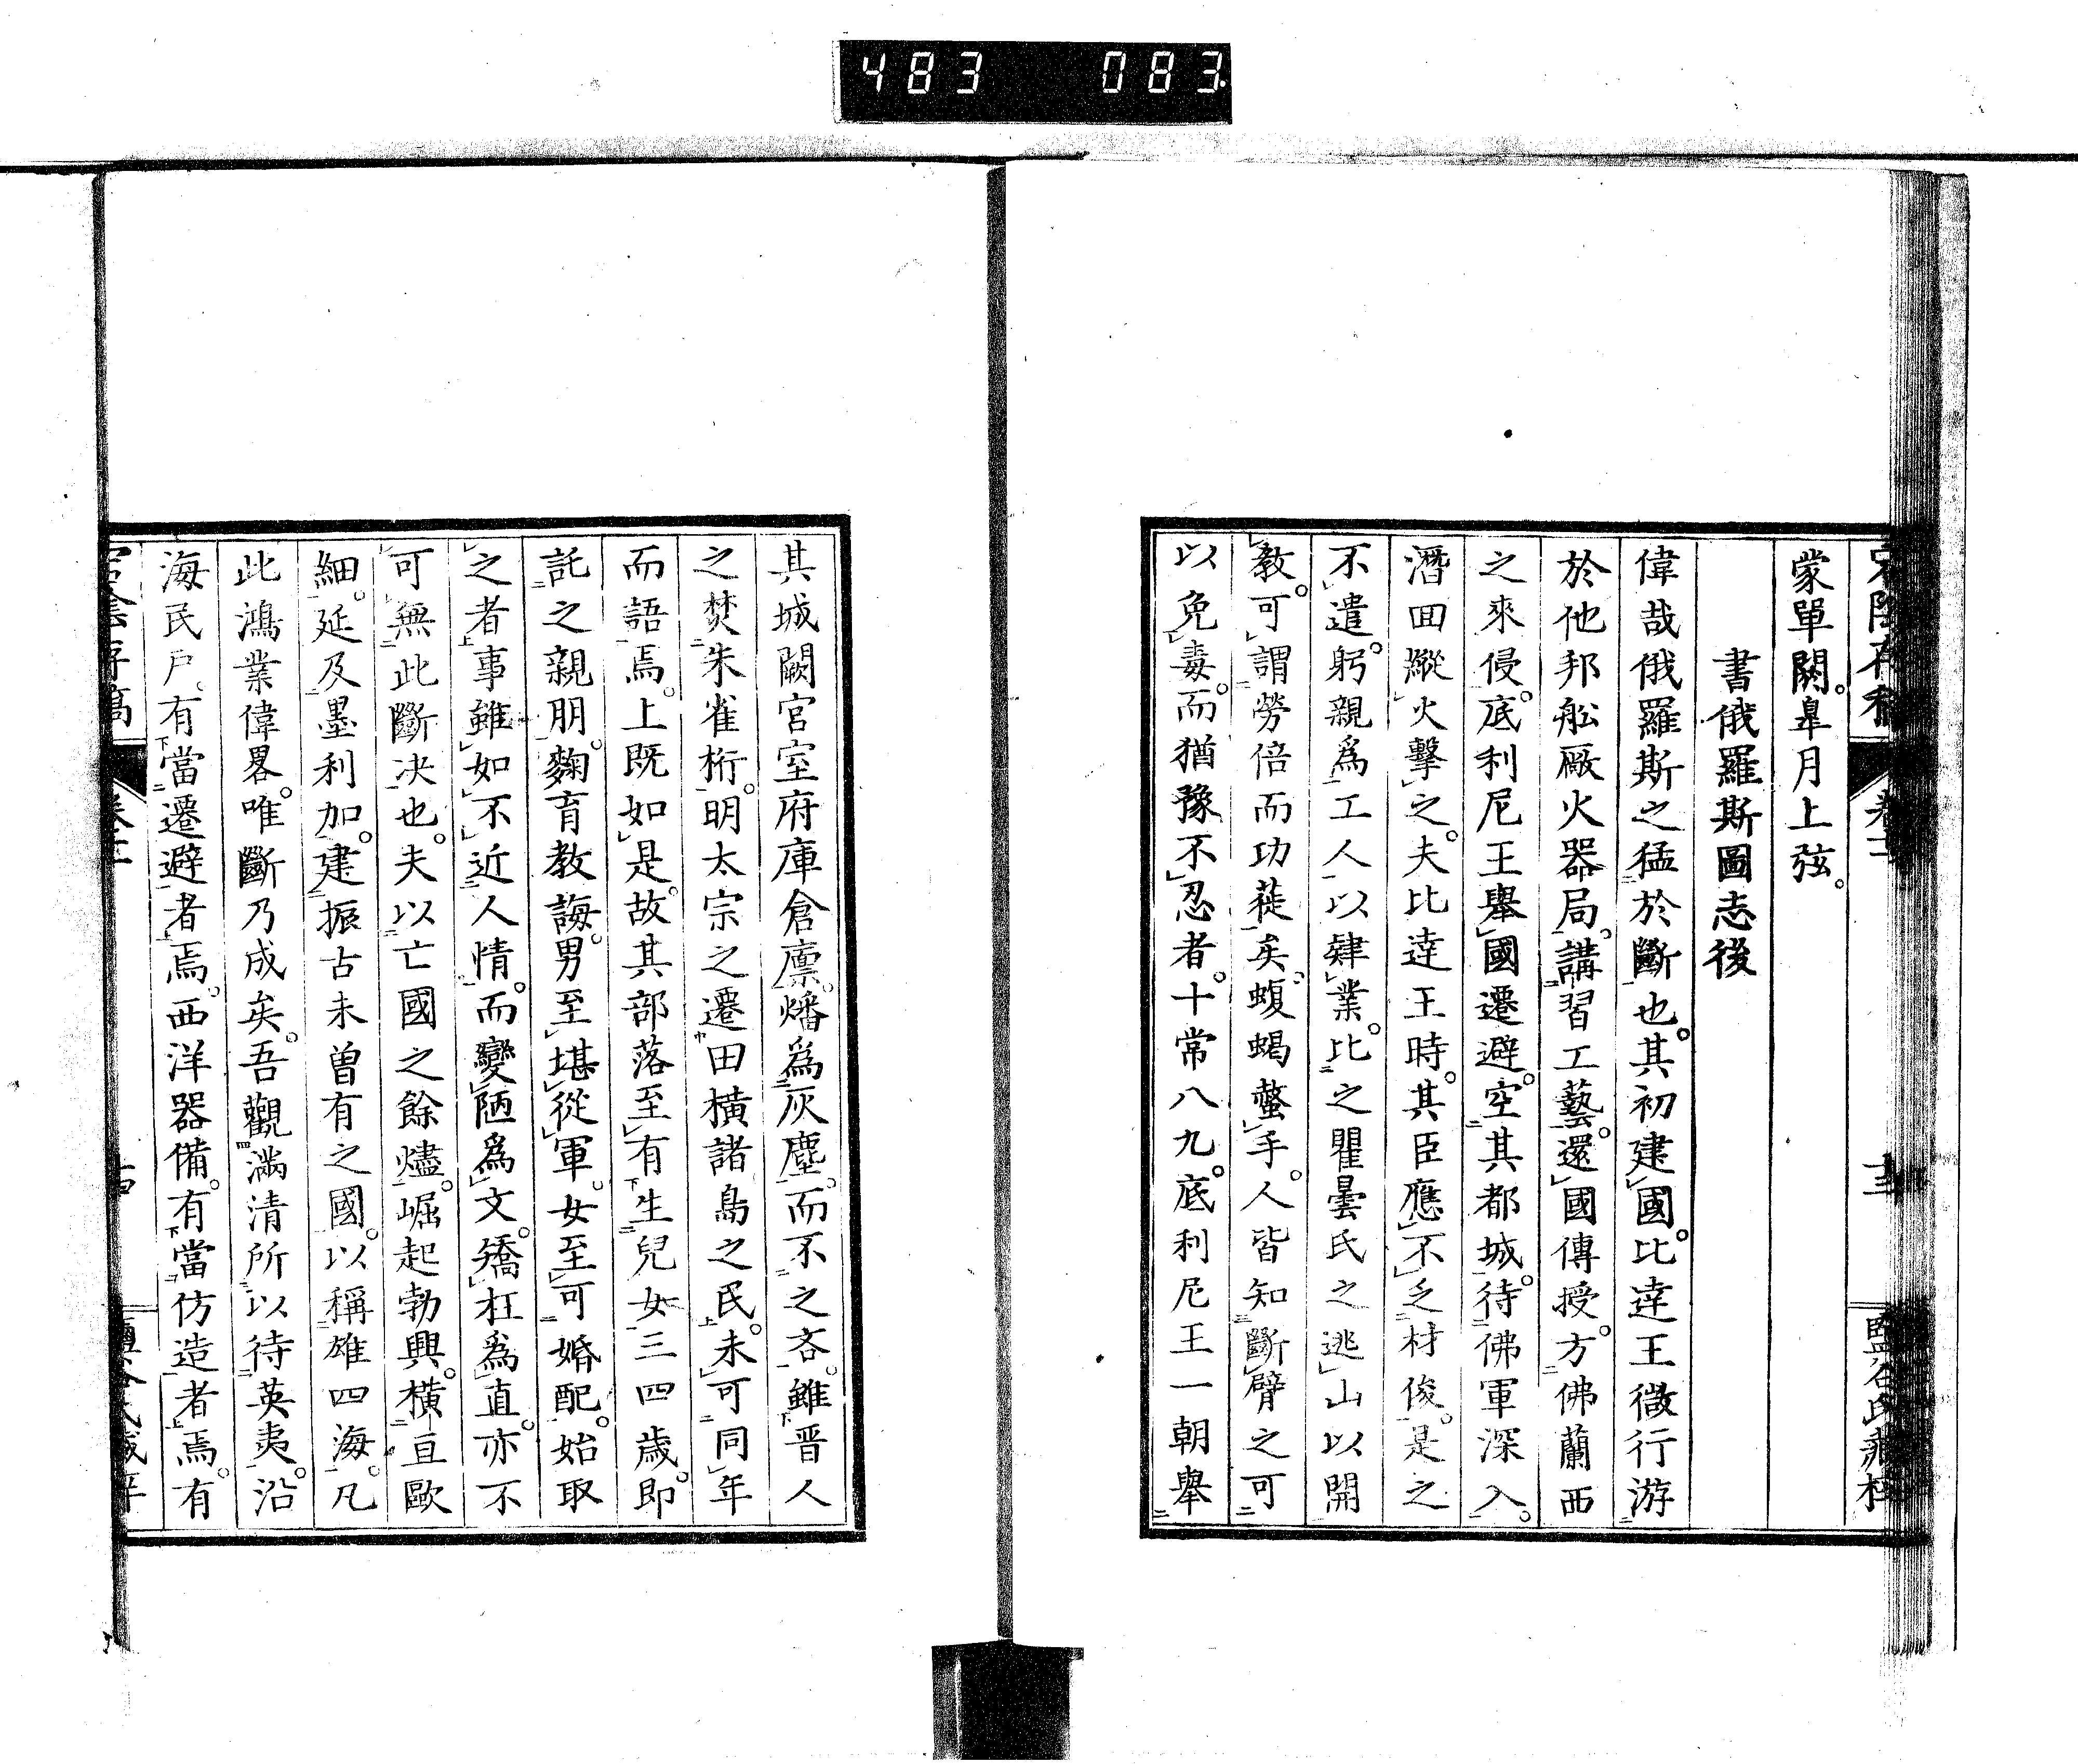 483 083
蒙單閼。皐月上弦。
書俄羅斯圖志後
偉哉俄羅斯之猛於斷也。其初建國。比達王微行游
於他邦船廠火器局。講習工藝。還國傳授。方佛蘭西
之來侵。底利尼王舉國遷避。空其都城。待佛軍深入。
潛囬縱火擊之。夫比達王時。其臣應不乏材俊。是之
不遣。躬親爲工人以肄業。比之瞿曇氏之逃山以開
教。可謂勞倍而功蓰矣。蝮蝎螫手。人皆知斷臂之可
以免毒。而猶豫不忍者。十常八九。底利尼王一朝舉
其城闕宮室府庫倉廩。燔爲灰塵。而不之吝。雖晋人
之焚朱雀桁。明太宗之遷田橫諸島之民。未可同年
而語焉。上既如是。故其部落至有生兒女三四歲。即
託之親朋。鞠育教誨。男至堪從軍。女至可婚配。始取
之者。事雖如不近人情。而變陋爲文。矯枉爲直。亦不
可無此斷决也。夫以亡國之餘燼。崛起勃興。橫亘歐
細。延及墨利加。建振古未曾有之國。以稱雄四海。凡
此鴻業偉畧。唯斷乃成矣。吾觀滿清所以待英夷。沿
海民戶。有當遷避者焉。西洋器備。有當仿造者焉。有